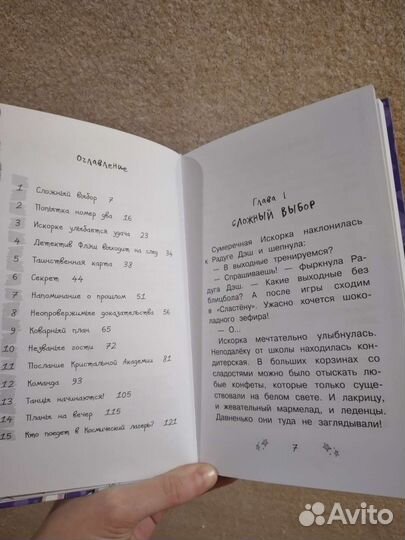 Оглавление
1 Сложный выбор 7
2 Попытка номер два 16
3 Искорке улыбается удача 23
4 Детектив Флэш выходит на след 34
5 Таинственная карта 38
6 Секрет 44
7 Напоминание о прошлом 51
8 Неопровержимые доказательства 56
9 Коварный план 65
10 Незваные гости 72
11 Послание Кристальной Академии 81
12 Команда 93
13 Танцы начинаются! 105
14 Планы на вечер 115
15 Кто поедет в Космический лагерь? 121
Глава 1
Сложный выбор
Сумеречная Искорка наклонилась
к Радуге Дэш и шепнула:
— В выходные тренируемся?
— Спрашиваешь! — фыркнула Ра-
дуга Дэш. — Какие выходные без
блицбола? А после игры сходим
в «Сластёну». Ужасно хочется шоко-
ладного зефира!
— О...
Искорка мечтательно улыбнулась.
Неподалёку от школы находилась кон-
дитерская. В больших корзинах со
сладостями можно было отыскать лю-
бые конфеты, которые только суще-
ствовали на белом свете. И лакрицу,
и жевательный мармелад, и леденцы.
Давненько они туда не заглядывали!
7
Avito